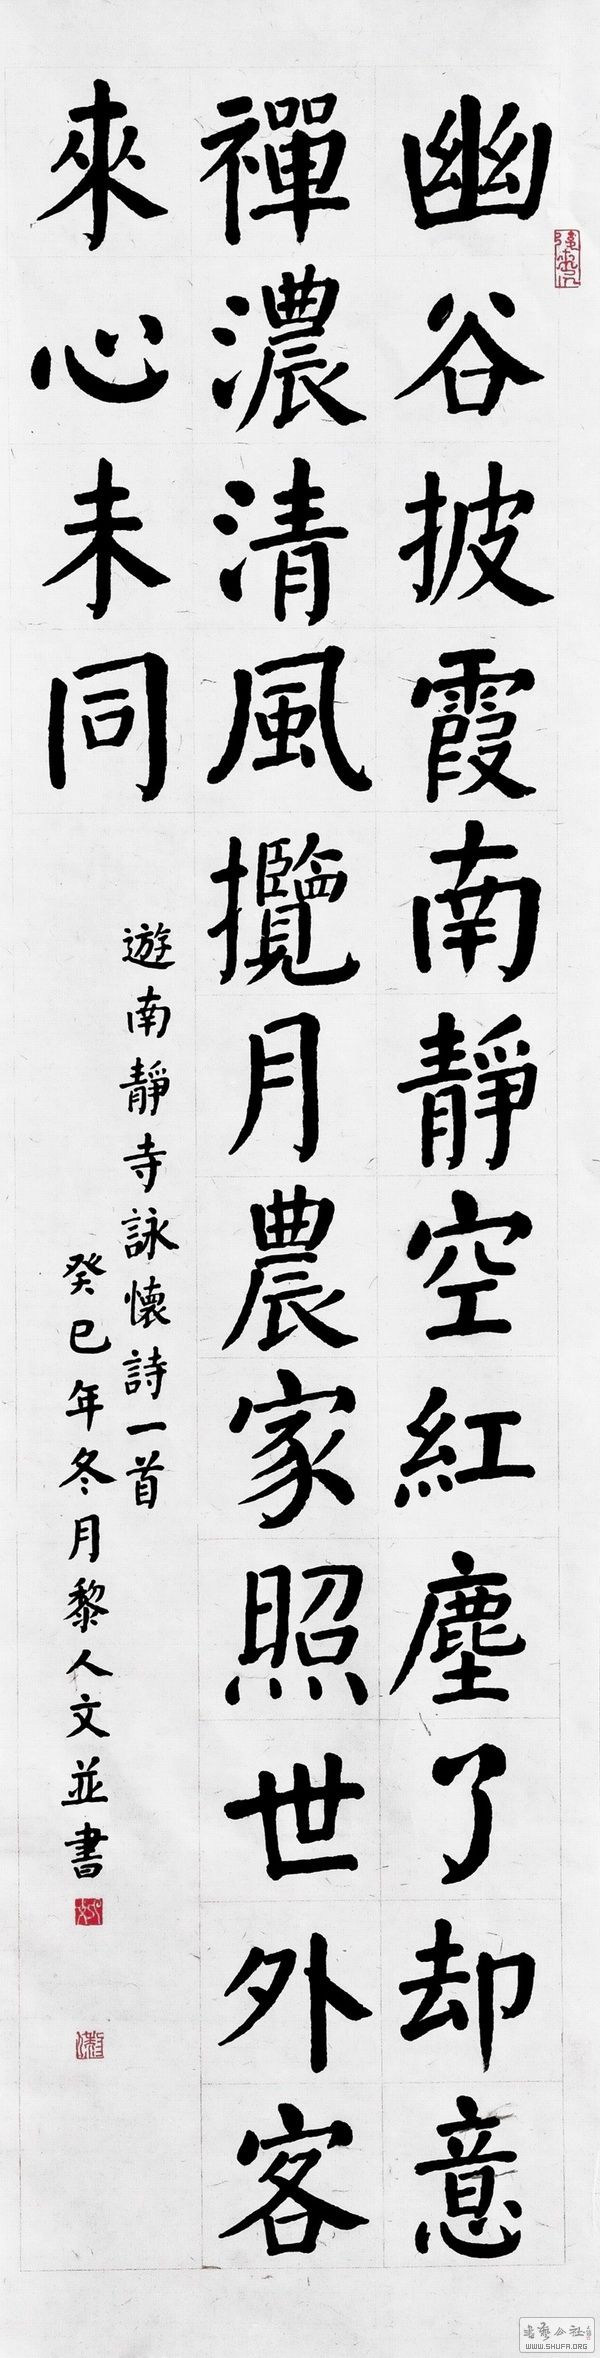 幽谷披霞南靜空紅塵了却意
禪濃清風攬月農家照世外客
來心未同
遊南靜寺詠懷詩一首
癸巳年冬月黎人文並書
WWW.SHUFA.ORG